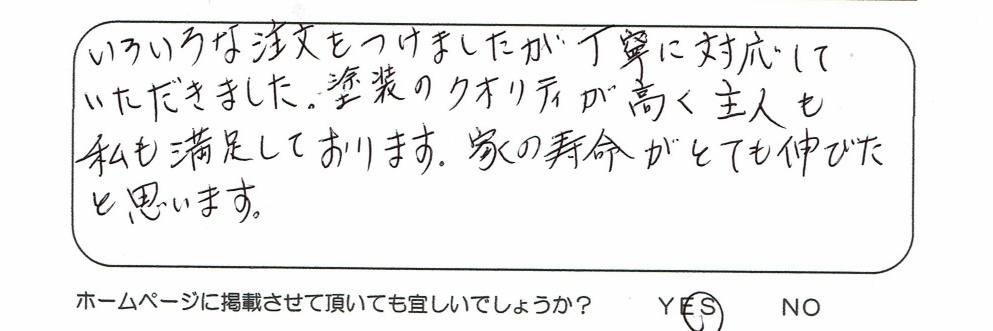 いろいろな注文をつけましたが丁寧に対応して
いただきました。塗装のクオリティが高く主人も
私も満足しております。家の寿命がとても伸びた
と思います。
ホームページに掲載させて頂いても宜しいでしょうか？ YES NO